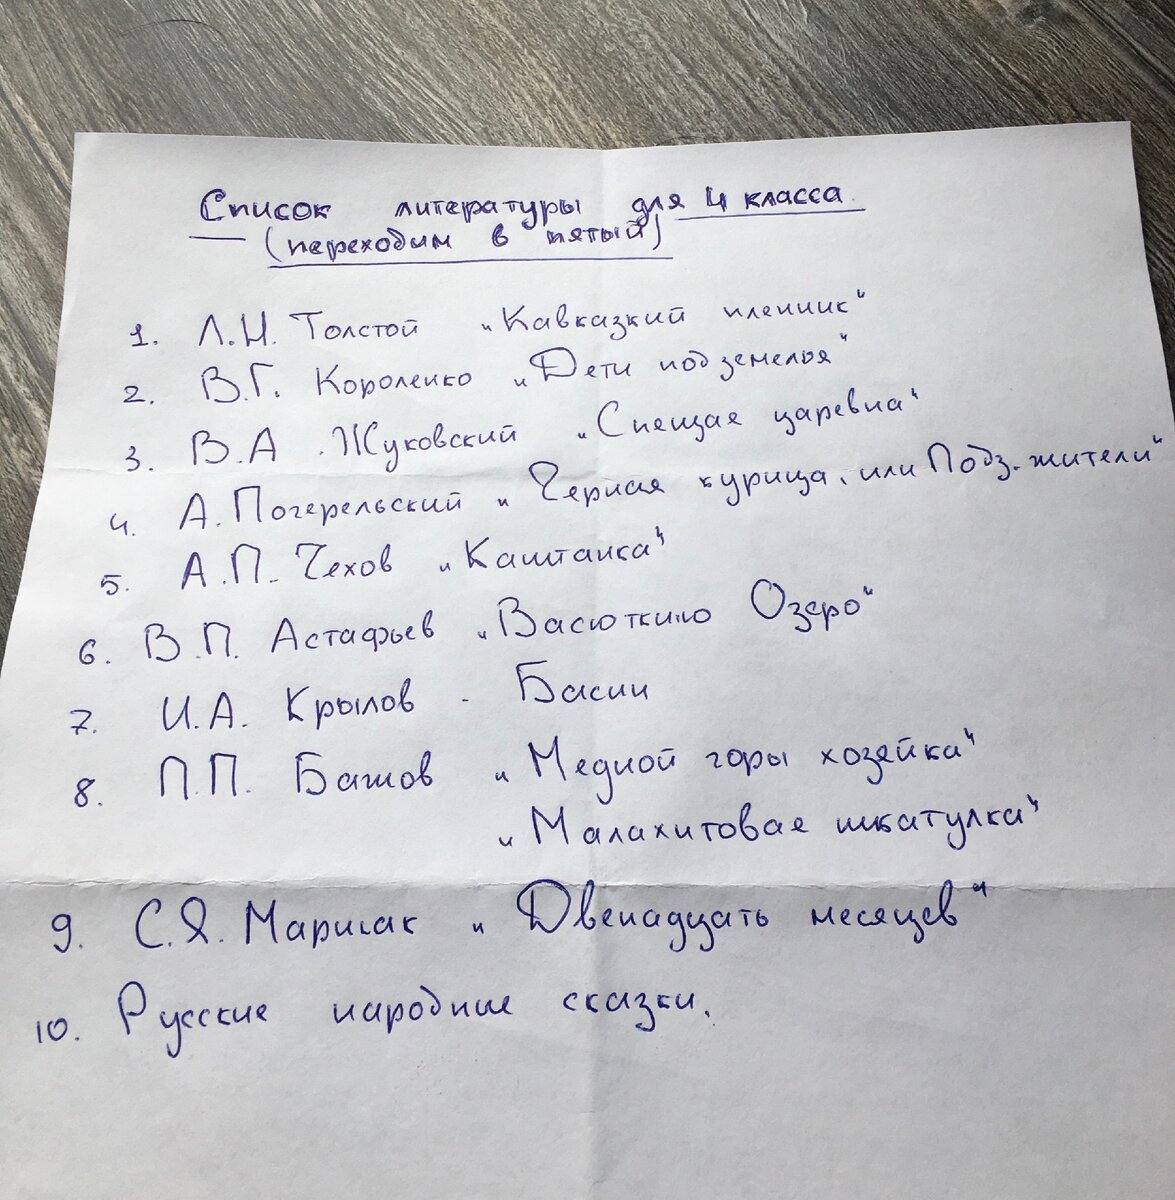 Список литературы для 4 класса
(переходим в пятый)
1. Л.Н. Толстой „Кавказкий пленник“
2. В.Г. Короленко „Дети подземелья“
3. В.А. Жуковский „Спещая царевна“
4. А. Погерельский „Черная курица, или Подз. жители“
5. А.П. Чехов „Каштанка“
6. В.П. Астафьев „Васюткино Озеро“
7. И.А. Крылов - Басни
8. П.П. Бажов „Медной горы хозяйка“
„Малахитовая шкатулка“
9. С.Я. Маршак „Двенадцать месяцев“
10. Русские народные сказки.